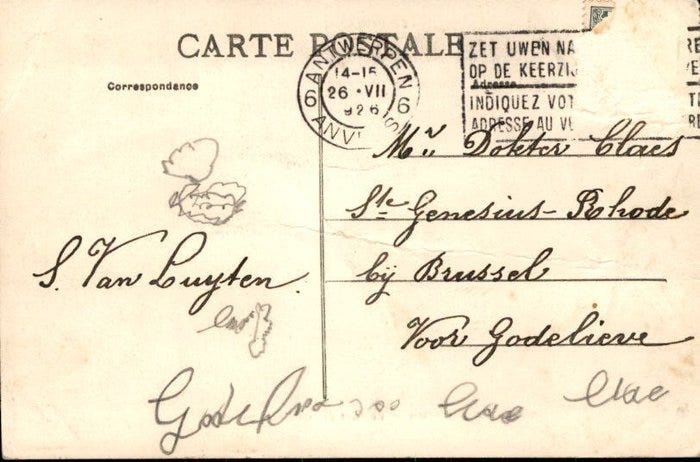 CARTE POSTALE
Correspondance
ANTWERPEN
14-15
26 · VII
926
6 6
ANVERS
ZET UWEN NA
OP DE KEERZIJ
Adresse
INDIQUEZ VOT
ADRESSE AU VE
Mr. Dokter Claes
Ste Genesius-Rhode
bij Brussel
Voor Godelieve
S. Van Luyten.